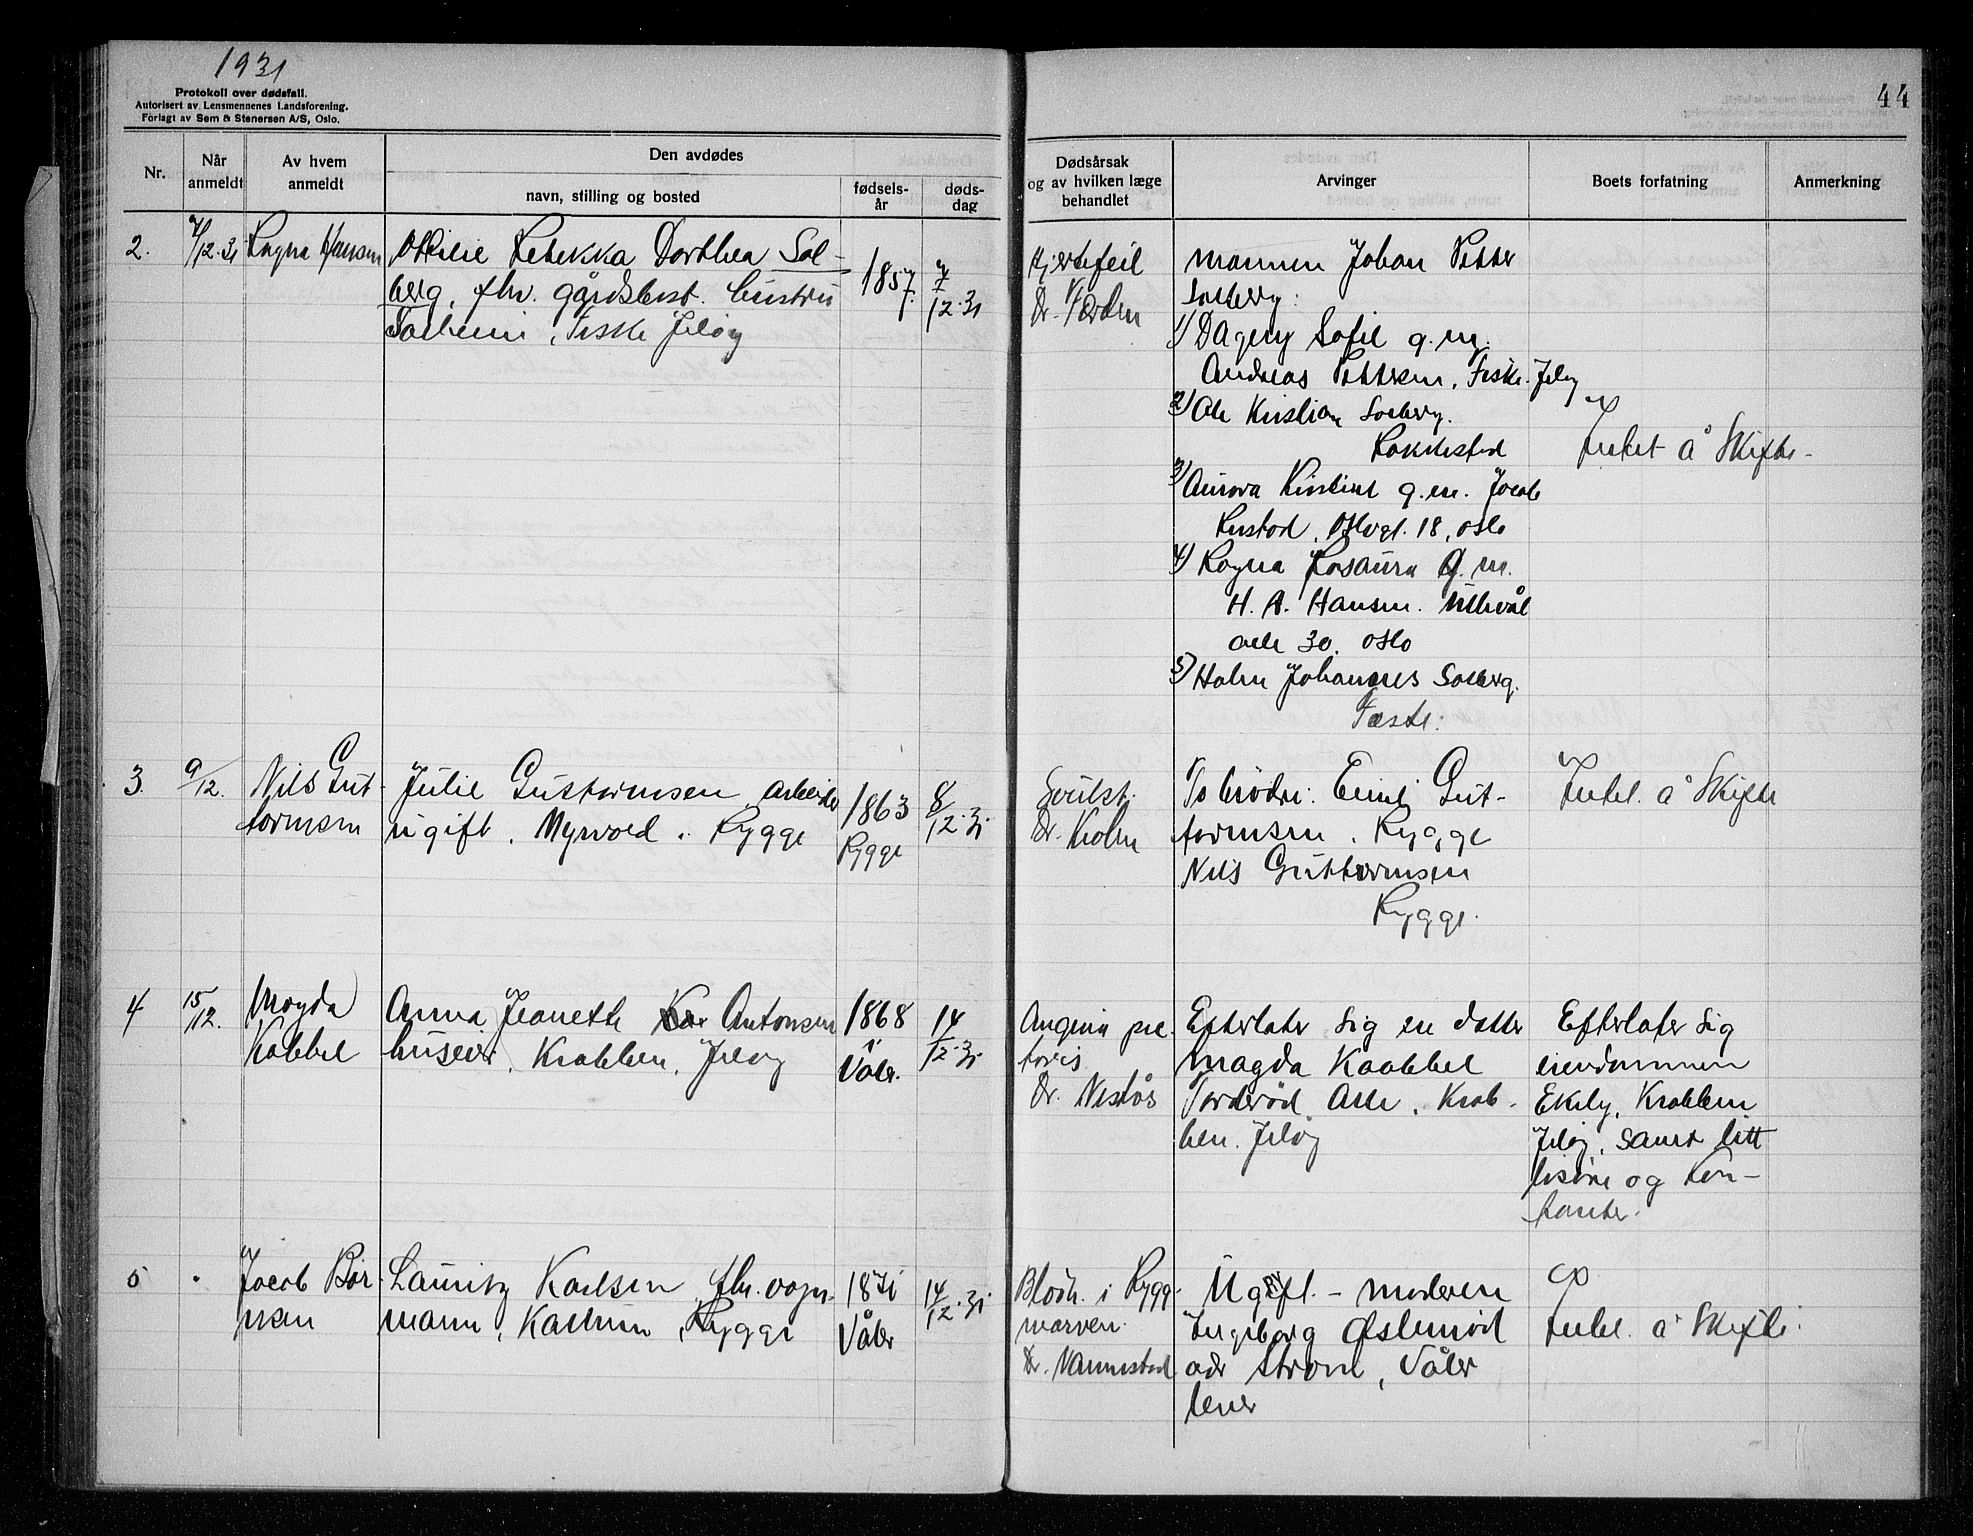 1931
Protokoll over dødsfall.
Autorisert av Lensmennenes Landsforening.
Forlagt av Sem & Stenersen A/S, Oslo.
44
Nr.
Når anmeldt
Av hvem anmeldt
Den avdødes
navn, stilling og bosted
fødsels-år
døds-dag
Dødsårsak og av hvilken læge behandlet
Arvinger
Boets forfatning
Anmerkning
2.
7/12.31
Ragna Hansen
Otilie Rebekka Dorthea Sol-
berg, fhv. gårdsbest. hustru
Solheim, Jeløy
1857.
7/12.31
Hjertefeil
Dr.
mannen Johan Petter
Solberg:
1) Dagny Sofie g.m.
Andreas Pettersen, Jeløy
2) Ole Kristian Solberg.
3) Aurora Kirstine g.m. Jacob
Rustad, Oslogt. 18, Oslo
4) Ragna Rosaura g.m.
H. A. Hansen. Ullevål
alle 30. Oslo
5) Holm Johannes Solberg.
Intet å skifte.
3.
9/12.
Nils Gut-
tormsen
Julie Guttormsen arbeider
ugift, Myrvold, Rygge
1863
Rygge
8/12.31
Svulst.
Dr. Holm
To brødre: Emil Gut-
tormsen, Rygge
Nils Guttormsen
Rygge.
Intet å skifte
4
15/12.
Magda
Kabbel
Anna Jeanette Antonsen
huseier, Krabben, Jeløy
1868
Våler.
14/12.31
Angina pec-
toris
Dr. Nestås
Efterlater sig en datter
Magda Kaabbel
Torderød Alle, Krab-
ben. Jeløy
Efterlater sig
eiendommen
Ekely, Krabben
Jeløy, samt litt
løsøre og kon-
tanter.
5
Jacob Bør-
resen
Lauritz Karlsen, fhv. vogn-
mann, Rygge
1871
Våler
14/12.31
Blødn. i Rygg-
marven.
Dr. Vannestad
Ugift. - moderen
Ingeborg
Strøm, Våler
lever
Intet å skifte.